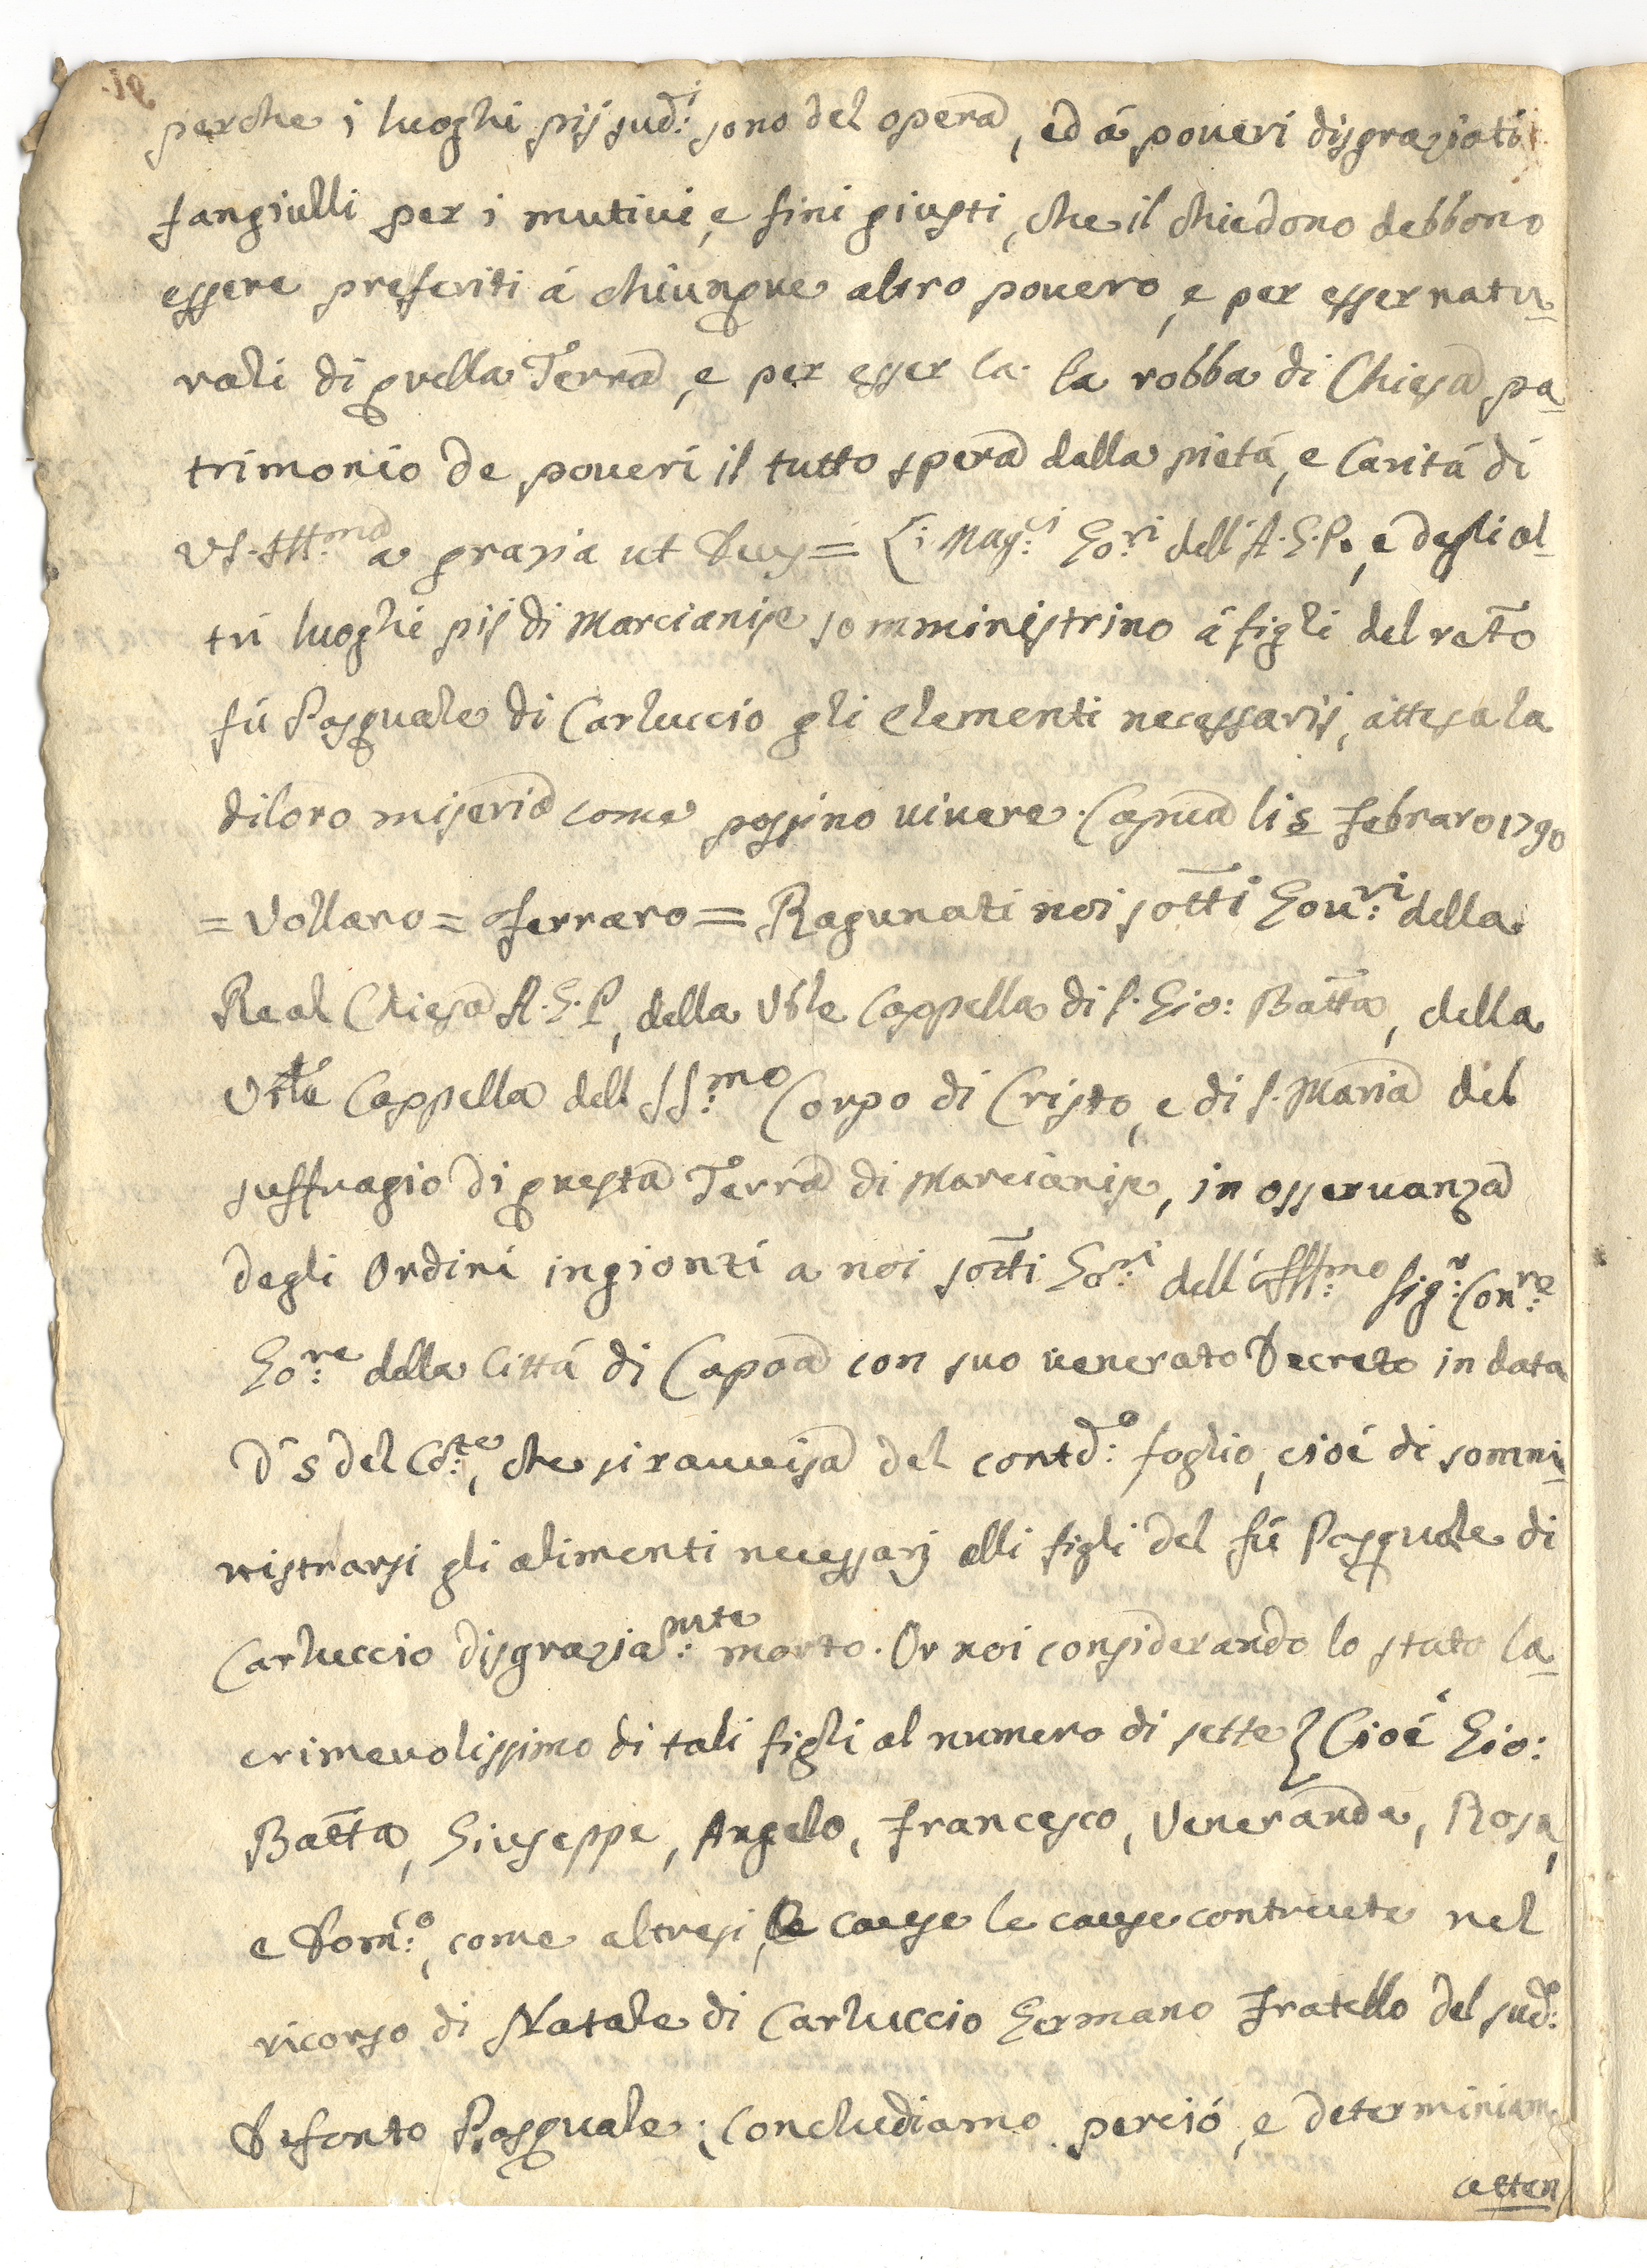 perche i luoghi pij sud:i sono del opera, ed á poueri disgraziati
fangiulli per i mutiui, e fini giusti, che il chiedono debbono
essere preferiti á chiunque altro pouero, e per esser natu_
rali di quella Terra, e per esser la la robba di Chiesa pa_
trimonio de poueri il tutto spera dalla pietá, e Caritá di
VS. Ill:ma a grazia ut Deus = Li Mag:ci Go:ri dell' A.G.P., e degli al_
tri luoghi pij di Marcianise somministrino á figli del retto
fú Pasquale di Carluccio gli elementi necessarij, attesa la
diloro miseria come possino uiuere. Capua li 5 Febraro 1790
= Vollaro = Ferraro = Ragunati noi sotti Gou:ri della
Real Chiesa A.G.P, della Vble Cappella di S. Gio: Batta, della
Vble Cappella dell SS:mo Corpo di Cristo, e di S. Maria del
suffragio di questa Terra di Marcianise, in osseruanza
degli Ordini ingionti a noi sotti Go:ri dell' Ill:mo Sig:r Con:re
Go:re della Cittá di Capoa con suo uenerato Decreto in data
D' 5 del Co:te, che si rauuisa del contd:o foglio, cioé di sommi_
nistrarsi gli alimenti necessarj alli figli del fú Pasquale di
Carluccio disgrazia:mte morto. Or noi considerando lo stato la_
crimeuolissimo di tali figli al numero di sette } Cioé Gio:
Batta, Giuseppe, Angelo, Francesco, Veneranda, Rosa,
e Dom:co, come altresi le cause le cause contenute nel
ricorso di Natale di Carluccio Germano Fratello del sud:o
Defonto Pasquale; Concludiamo perció, e determiniam
atten